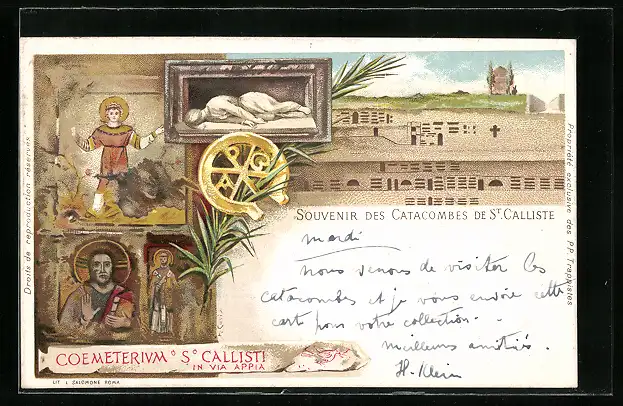 Droits de reproduction réservés
Propriété exclusive des P.P. Trappistes
SOUVENIR DES CATACOMBES DE ST. CALLISTE
mardi
nous venons de visiter les
catacombes et je vous envoie cette
carte pour votre collection.
meilleures amitiés.
H. Klein
COEMETERIVM So CALLISTI
IN VIA APPIA
LIT. L. SALOMONE ROMA